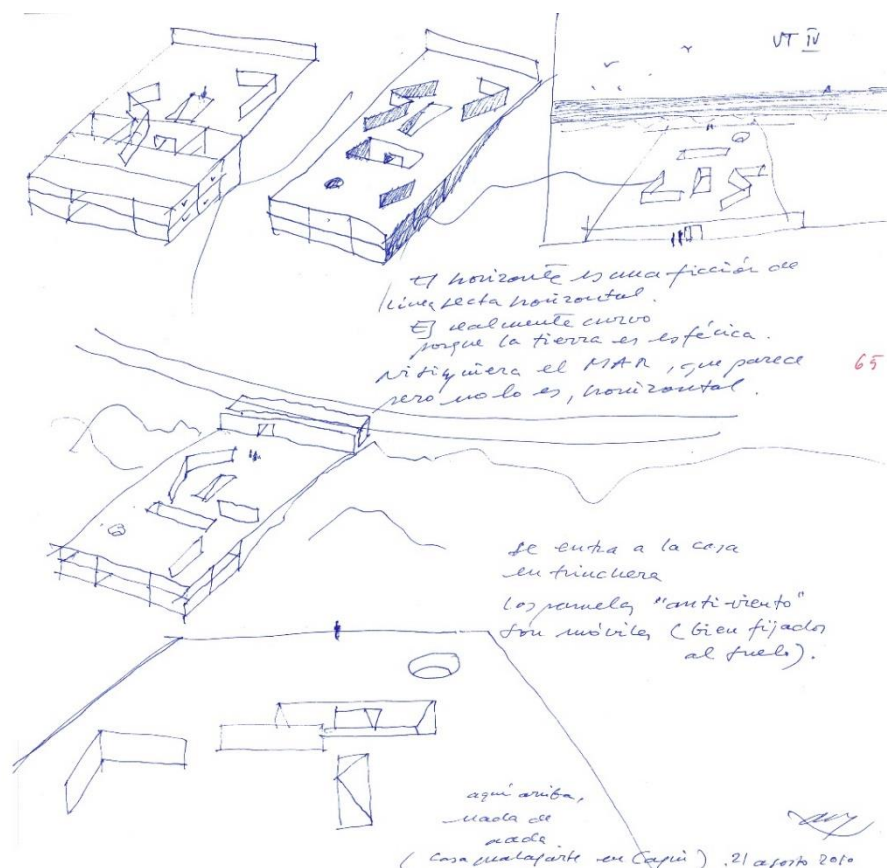 VT IV
El horizonte es una ficción de
línea recta horizontal.
Es realmente curvo
porque la tierra es esférica.
Ni siquiera el MAR, que parece
pero no lo es, horizontal.
65
se entra a la casa
en trinchera
Los paneles "anti-viento"
son móviles (bien fijados
al suelo).
aquí arriba,
nada de
nada
(casa en). 21 agosto 2010